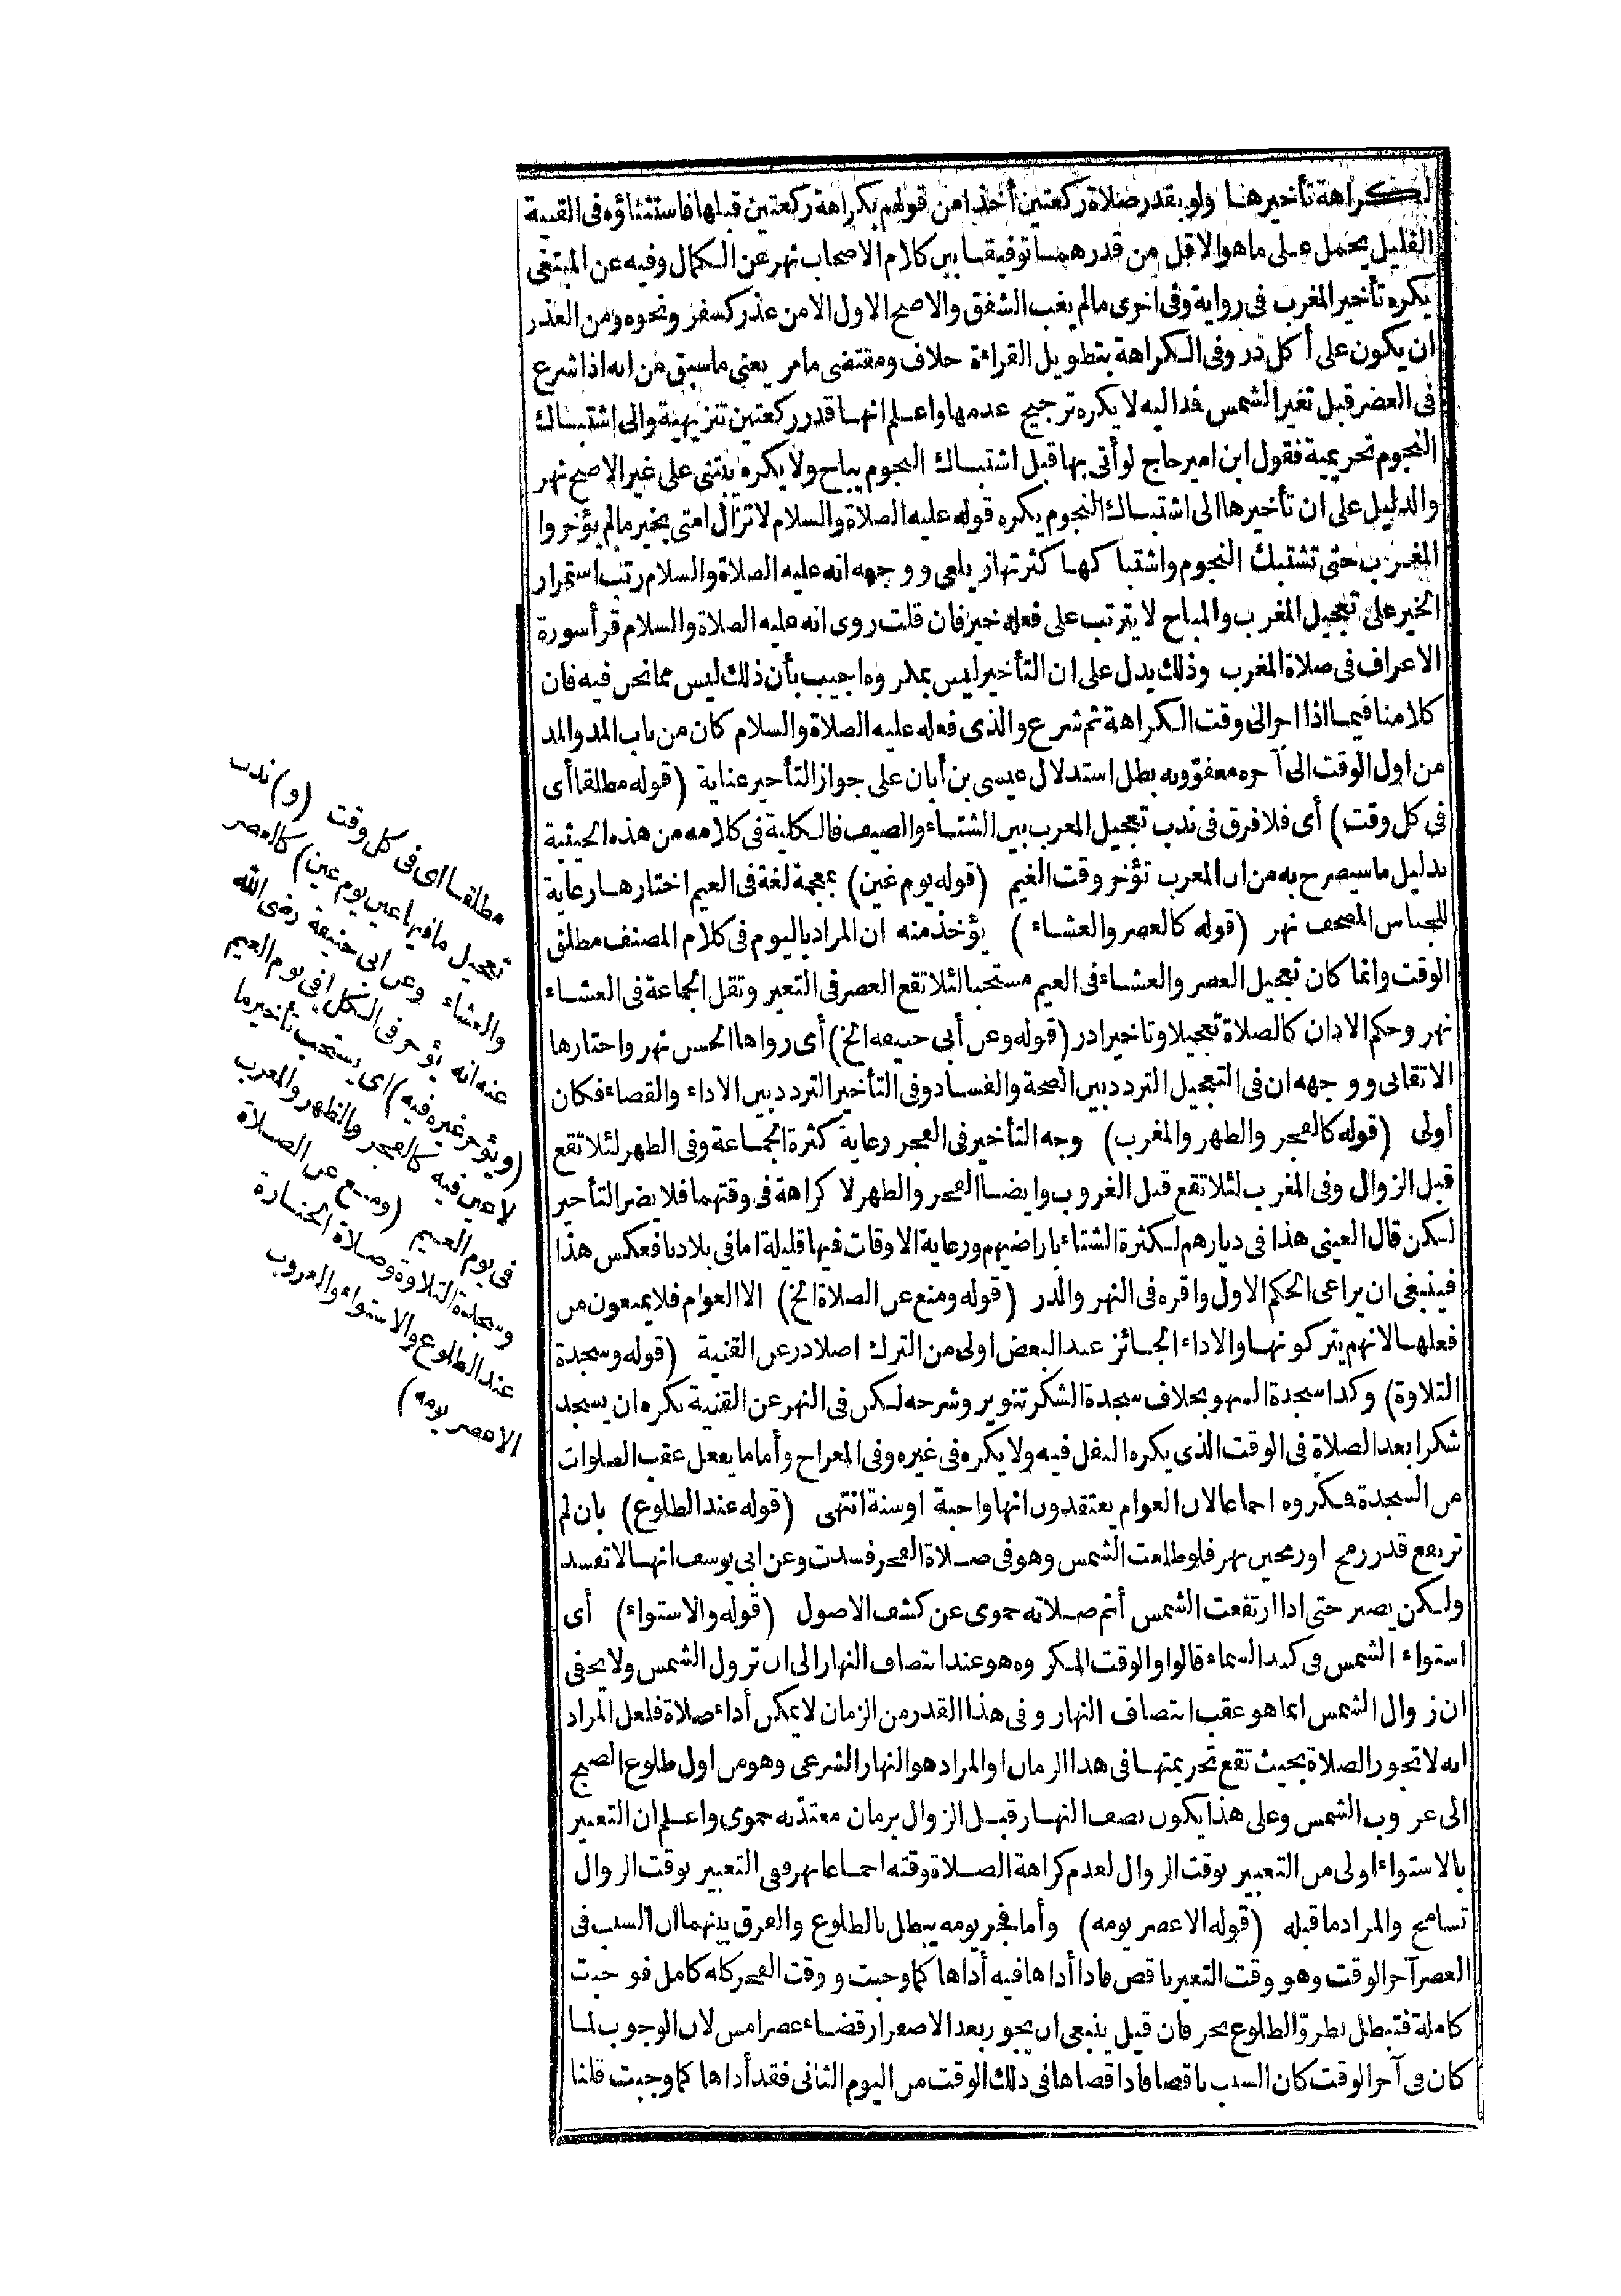 لكراهة تأخيرها ولو بقدر صلاة ركعتين أخذا من قولهم بكراهة ركعتين قبلها فاستثناؤه فى القنية
القليل يحمل على ما هو الاقل من قدرهما توفيقا بين كلام الاصحاب نهر عن الكمال وفيه عن المبتغى
يكره تأخير المغرب فى رواية وفى اخرى مالم يغب الشفق والاصح الاول الامن عذر كسفر ونحوه ومن العذر
ان يكون على أكل در وفى الكراهة بتطويل القراءة خلاف ومقتضى مامر يعنى ماسبق من انه اذا شرع
فى العصر قبل تغير الشمس فمد اليه لا يكره ترجيح عدمها واعلم انها قدر ركعتين تنزيهية والى اشتباك
النجوم تحريمية فقول ابن امير حاج لو أتى بها قبل اشتباك النجوم يباح ولا يكره يبتنى على غير الاصح نهر
والدليل على ان تأخيرها الى اشتباك النجوم يكره قوله عليه الصلاة والسلام لا تزال امتى بخير مالم يؤخروا
المغرب حتى تشتبك النجوم واشتباكها كثرتها زيلعى ووجهه انه عليه الصلاة والسلام رتب استمرار
الخير على تعجيل المغرب والمباح لا يترتب على فعله خير فان قلت روى انه عليه الصلاة والسلام قرأ سورة
الاعراف فى صلاة المغرب وذلك يدل على ان التأخير ليس بمكروه اجيب بأن ذلك ليس مما نحن فيه فان
كلامنا فيما اذا اخر الى وقت الكراهة ثم شرع والذى فعله عليه الصلاة والسلام كان من باب المد والمد
من اول الوقت الى آخره معفوّ وبه بطل استدلال عيسى بن أبان على جواز التأخير عناية (قوله مطلقا أى
فى كل وقت) أى فلا فرق فى ندب تعجيل المغرب بين الشتاء والصيف فالكلية فى كلامه من هذه الحيثية
بدليل ما سيصرح به من ان المغرب تؤخر وقت الغيم (قوله يوم غين) بمعجمة لغة فى الغيم اختارها رعاية
للجناس المصحف نهر (قوله كالعصر والعشاء) يؤخذ منه ان المراد باليوم فى كلام المصنف مطلق
الوقت وانما كان تعجيل العصر والعشاء فى الغيم مستحبا لئلا تقع العصر فى التغير وتقل الجماعة فى العشاء
نهر وحكم الاذان كالصلاة تعجيلا وتاخيرا در (قوله وعن أبى حنيفة الخ) أى رواها الحسن نهر واختارها
الاتقانى ووجهه ان فى التعجيل التردد بين الصحة والفساد وفى التأخير التردد بين الاداء والقضاء فكان
أولى (قوله كالفجر والظهر والمغرب) وجه التأخير فى الفجر رعاية كثرة الجماعة وفى الظهر لئلا تقع
قبل الزوال وفى المغرب لئلا تقع قبل الغروب وايضا الفجر والظهر لا كراهة فى وقتهما فلا يضر التأخير
لكن قال العينى هذا فى ديارهم لكثرة الشتاء باراضيهم ورعاية الاوقات فيها قليلة اما فى بلادنا فعكس هذا
فينبغى ان يراعى الحكم الاول واقره فى النهر والدر (قوله ومنع عن الصلاة الخ) الا العوام فلا يمنعون من
فعلها لانهم يتركونها والاداء الجائز عند البعض اولى من الترك اصلا در عن القنية (قوله وسجدة
التلاوة) وكذا سجدة السهو بخلاف سجدة الشكر تنوير وشرحه لكن فى النهر عن القنية يكره ان يسجد
شكرا بعد الصلاة فى الوقت الذى يكره النفل فيه ولا يكره فى غيره وفى المعراج وأما ما يفعل عقب الصلوات
من السجدة فمكروه اجماعا لان العوام يعتقدون انها واجبة او سنة انتهى (قوله عند الطلوع) بان لم
ترتفع قدر رمح او رمحين نهر فلو طلعت الشمس وهو فى صلاة الفجر فسدت وعن ابى يوسف انها لا تفسد
ولكن يصبر حتى اذا ارتفعت الشمس أتم صلاته حموى عن كشف الاصول (قوله والاستواء) أى
استواء الشمس فى كبد السماء قالوا والوقت المكروه هو عند انتصاف النهار الى ان تزول الشمس ولا يخفى
ان زوال الشمس انما هو عقب انتصاف النهار وفى هذا القدر من الزمان لا يمكن أداء صلاة فلعل المراد
انه لا تجوز الصلاة بحيث تقع تحريمتها فى هذا الزمان او المراد هو النهار الشرعى وهو من اول طلوع الصبح
الى غروب الشمس وعلى هذا يكون نصف النهار قبل الزوال بزمان معتدّ به حموى واعلم ان التعبير
بالاستواء اولى من التعبير بوقت الزوال لعدم كراهة الصلاة وقته اجماعا نهر وفى التعبير بوقت الزوال
تسامح والمراد ما قبله (قوله الا عصر يومه) وأما فجر يومه يبطل بالطلوع والفرق بينهما ان السبب فى
العصر آخر الوقت وهو وقت التغير ناقص فاذا أداها فيه أداها كما وجبت ووقت الفجر كله كامل فوجبت
كاملة فتبطل بطروّ الطلوع بحر فان قيل ينبغى ان يجوز بعد الاصفرار قضاء عصر امس لان الوجوب لما
كان فى آخر الوقت كان السبب ناقصا فاذا قضاها فى ذلك الوقت من اليوم الثانى فقد أداها كما وجبت قلنا
مطلقا اى فى كل وقت (و) ندب
تعجيل ما فيها عين يوم غين) كالعصر
والعشاء وعن ابى حنيفة رضى الله
عنه انه يؤخر فى الكل فى يوم الغيم
(ويؤخر غيره فيه) اى يستحب تأخير ما
لا عين فيه كالفجر والظهر والمغرب
فى يوم الغيم (ومنع عن الصلاة
وسجدة التلاوة وصلاة الجنازة
عند الطلوع والاستواء والغروب
الا عصر يومه)